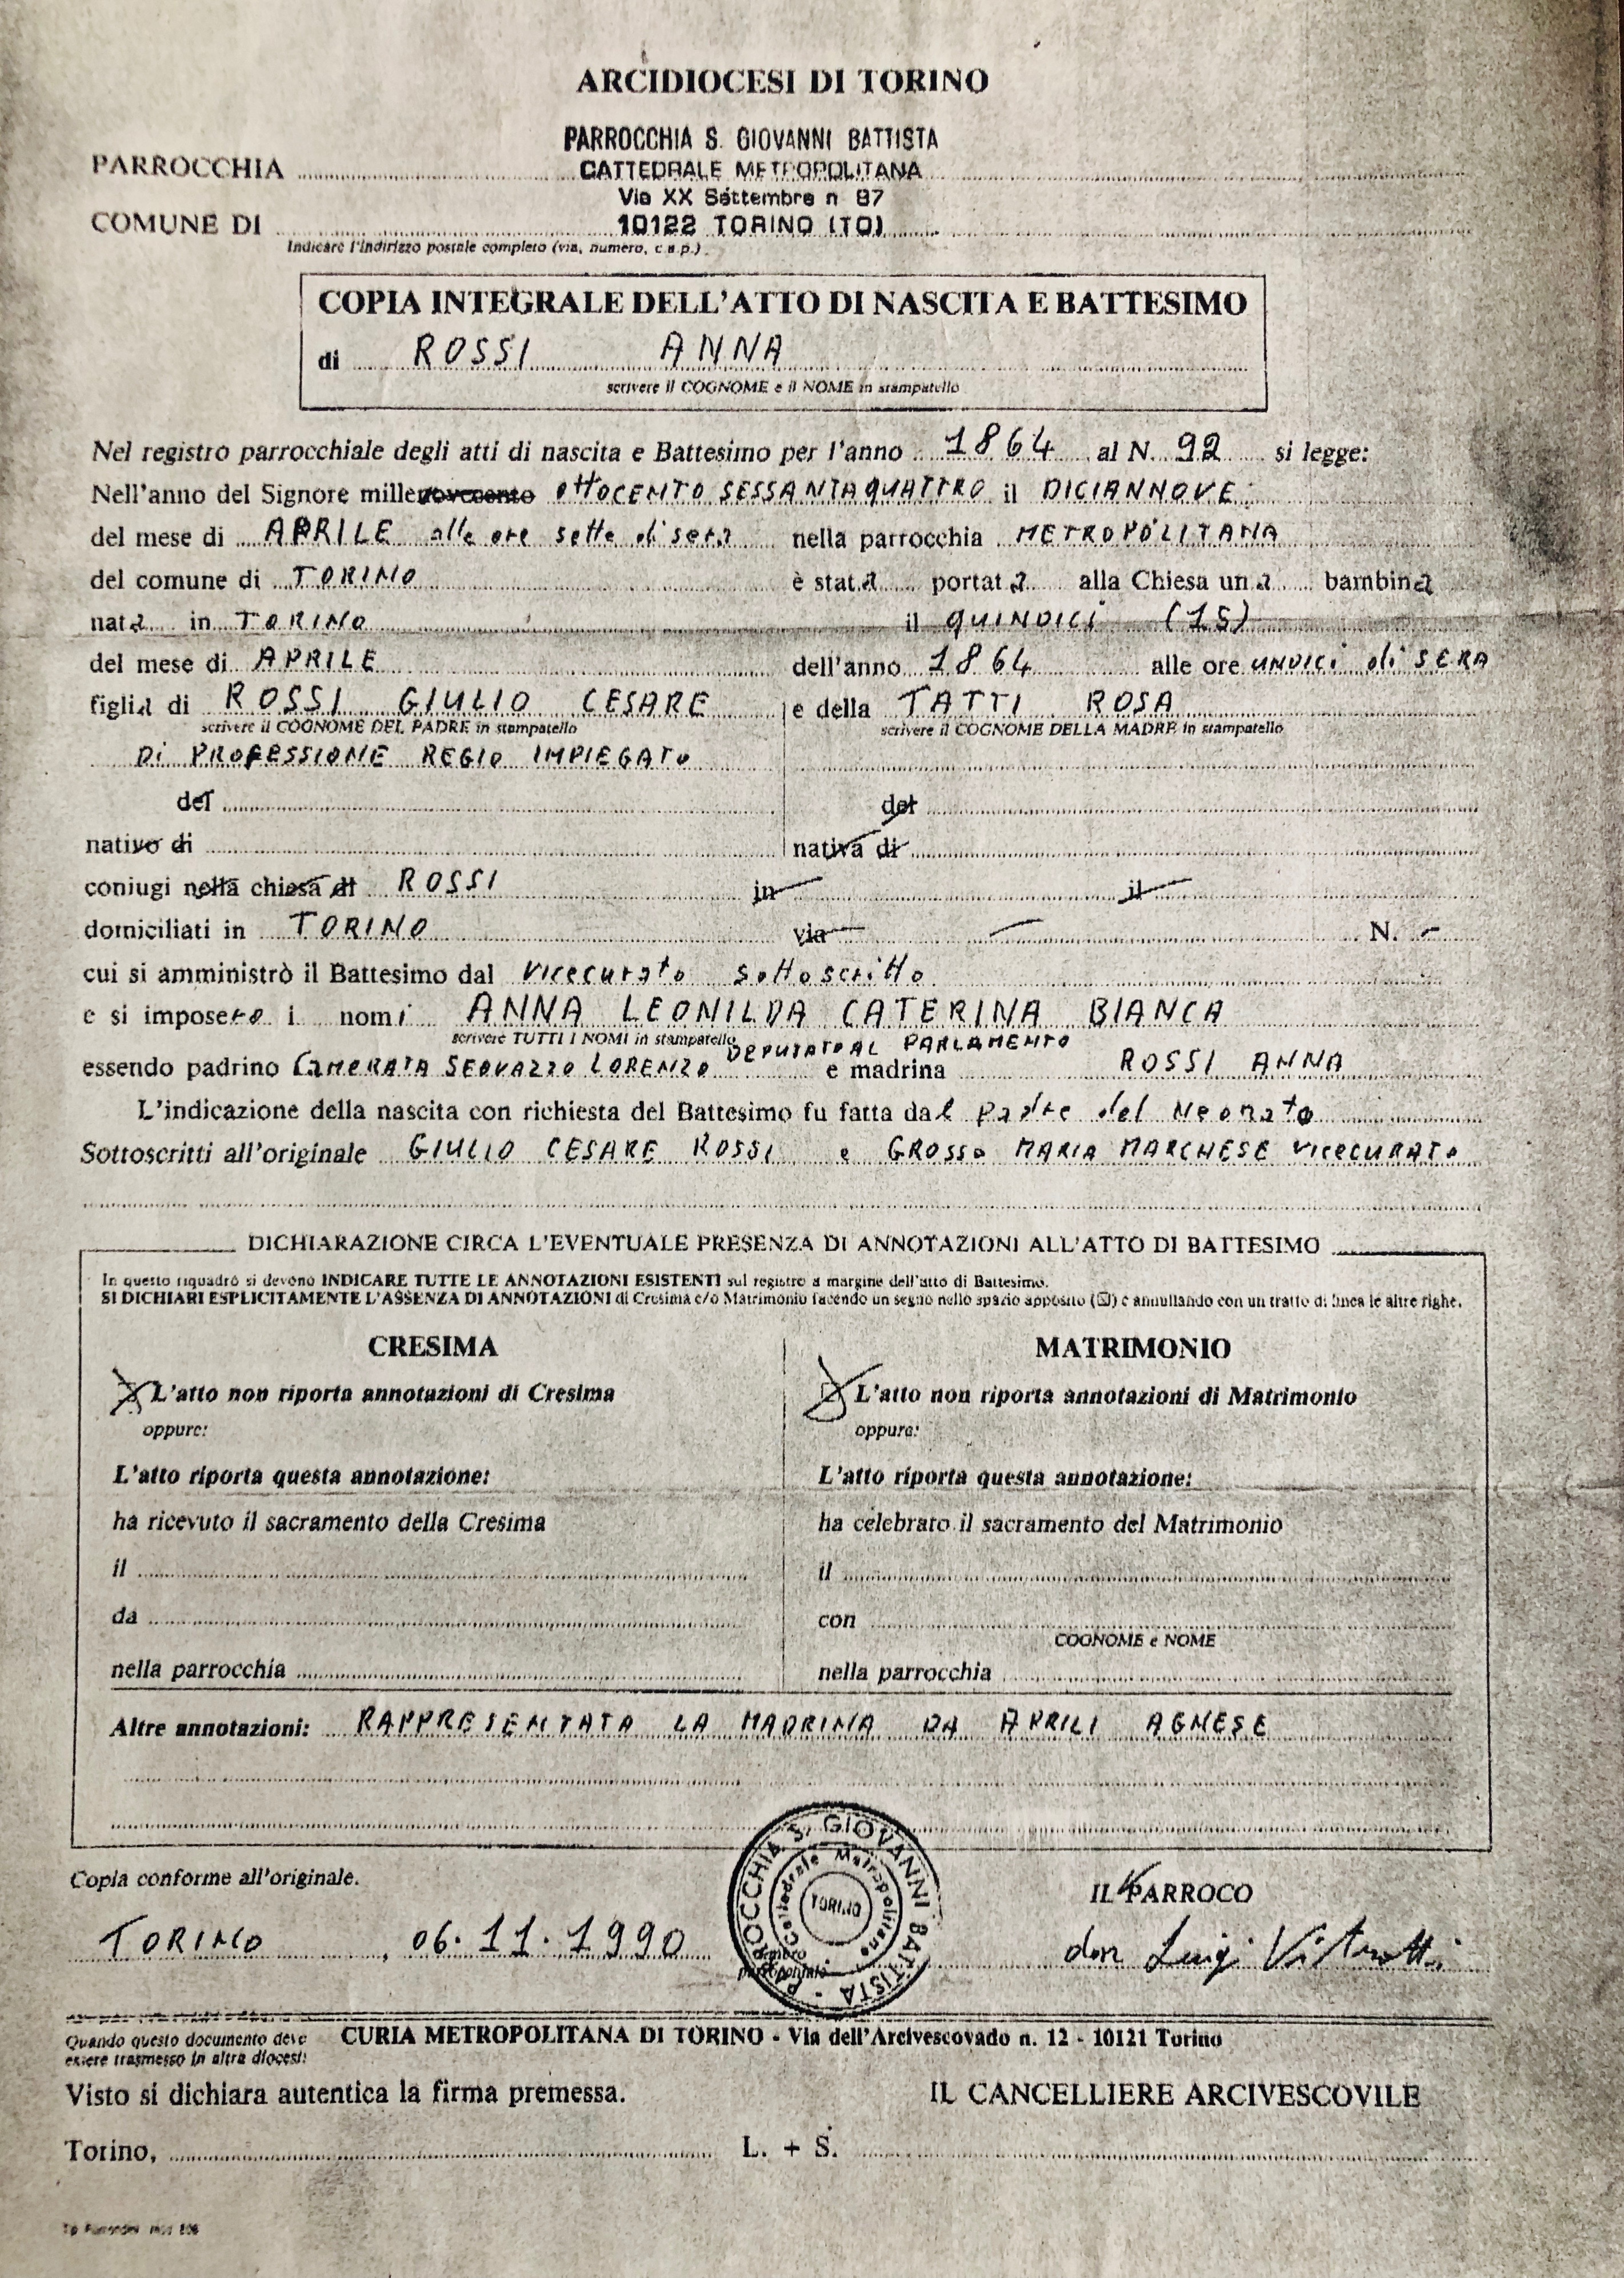 ARCIDIOCESI DI TORINO
PARROCCHIA S. GIOVANNI BATTISTA
PARROCCHIA CATTEDRALE METROPOLITANA
Via XX Settembre n 87
COMUNE DI 10122 TORINO (TO)
Indicare l'indirizzo postale completo (via, numero, c.a.p.)
COPIA INTEGRALE DELL'ATTO DI NASCITA E BATTESIMO
di ROSSI ANNA
scrivere il COGNOME e il NOME in stampatello
Nel registro parrocchiale degli atti di nascita e Battesimo per l'anno 1864 al N. 92 si legge:
Nell'anno del Signore millenovecento OTTOCENTO SESSANTAQUATTRO il DICIANNOVE
del mese di APRILE alle ore sette di sera nella parrocchia METROPOLITANA
del comune di TORINO è stata portata alla Chiesa una bambina
nata in TORINO il QUINDICI (15)
del mese di APRILE dell'anno 1864 alle ore UNDICI di SERA
figlia di ROSSI GIULIO CESARE e della TATTI ROSA
scrivere il COGNOME DEL PADRE in stampatello scrivere il COGNOME DELLA MADRE in stampatello
Di PROFESSIONE REGIO IMPIEGATO
del del
nativo di nativa di
coniugi nella chiesa di ROSSI in il
domiciliati in TORINO via N. -
cui si amministrò il Battesimo dal Vicecurato sottoscritto
e si imposero i nomi ANNA LEONILDA CATERINA BIANCA
scrivere TUTTI I NOMI in stampatello DEPUTATO AL PARLAMENTO
essendo padrino LORENZO e madrina ROSSI ANNA
L'indicazione della nascita con richiesta del Battesimo fu fatta dal padre del Neonato
Sottoscritti all'originale GIULIO CESARE ROSSI e GROSSO MARIA MARCHESE VICECURATO
DICHIARAZIONE CIRCA L'EVENTUALE PRESENZA DI ANNOTAZIONI ALL'ATTO DI BATTESIMO
In questo riquadro si devono INDICARE TUTTE LE ANNOTAZIONI ESISTENTI sul registro a margine dell'atto di Battesimo.
SI DICHIARI ESPLICITAMENTE L'ASSENZA DI ANNOTAZIONI di Cresima e/o Matrimonio facendo un segno nello spazio apposito (☒) e annullando con un tratto di linea le altre righe.
CRESIMA MATRIMONIO
L'atto non riporta annotazioni di Cresima L'atto non riporta annotazioni di Matrimonio
oppure: oppure:
L'atto riporta questa annotazione: L'atto riporta questa annotazione:
ha ricevuto il sacramento della Cresima ha celebrato il sacramento del Matrimonio
il il
da con
COGNOME e NOME
nella parrocchia nella parrocchia
Altre annotazioni: RAPPRESENTATA LA MADRINA DA APRILI AGNESE
PARROCCHIA S. GIOVANNI BATTISTA
Cattedrale Metropolitana
TORINO
Copia conforme all'originale. IL PARROCO
TORINO, 06.11.1990 don Luigi
timbro
parrocchiale
Quando questo documento deve
essere trasmesso in altra diocesi:
CURIA METROPOLITANA DI TORINO - Via dell'Arcivescovado n. 12 - 10121 Torino
Visto si dichiara autentica la firma premessa. IL CANCELLIERE ARCIVESCOVILE
Torino, L. + S.